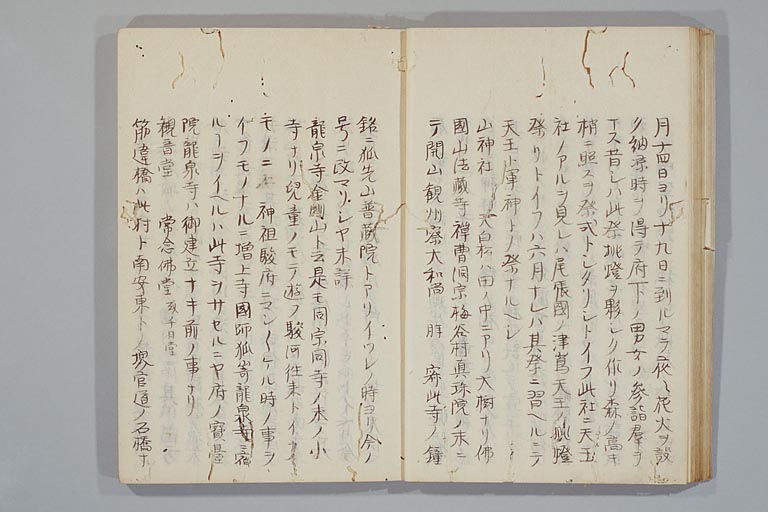 月十四日ヨリ十九日ニ到ルマテ夜々花火ヲ設
ク納涼時ヲ得テ府下ノ男女ノ参詣群ヲ
ナス昔シハ此祭挑燈ヲ夥シク作リ森ノ高キ
梢ニ照スヲ祭式トシタリシトイフ此社ニ天王
社ノアルヲ見レハ尾張國ノ津嶌天王ノ挑燈
祭リトイフハ六月ナレハ其祭ニ習ヘルニテ
天王ト軍神トノ祭ナルヘシ
山神社 大白松ハ田ノ中ニアリ大樹ナリ佛
國山法蔵寺禅曹洞宗梅谷村真珠院ノ末ニ
テ開山観州察大和尚 此寺ノ鐘
銘ニ狐先山普蔵院トアリイツレノ時ヨリ今ノ
号ニ改マリシヤ未詳
龍泉寺金山ト云是モ同宗同寺ノ末ノ小
寺ナリ兒童ノモテ遊フ駿河往来トイヘル
モノニ 神祖駿府ニマシ〱ケル時ノ事ヲ
イフモノナルニ増上寺國師狐嵜龍泉寺ニ宿
ルヿヲイヘルハ此寺ヲサセルニヤ府ノ寳臺
院龍泉寺ハ御建立ナキ前ノ事ナリ
観音堂 常念佛堂 千日堂
筋違橋ハ此村ト南安東トノ堺官道ノ石橋ナ